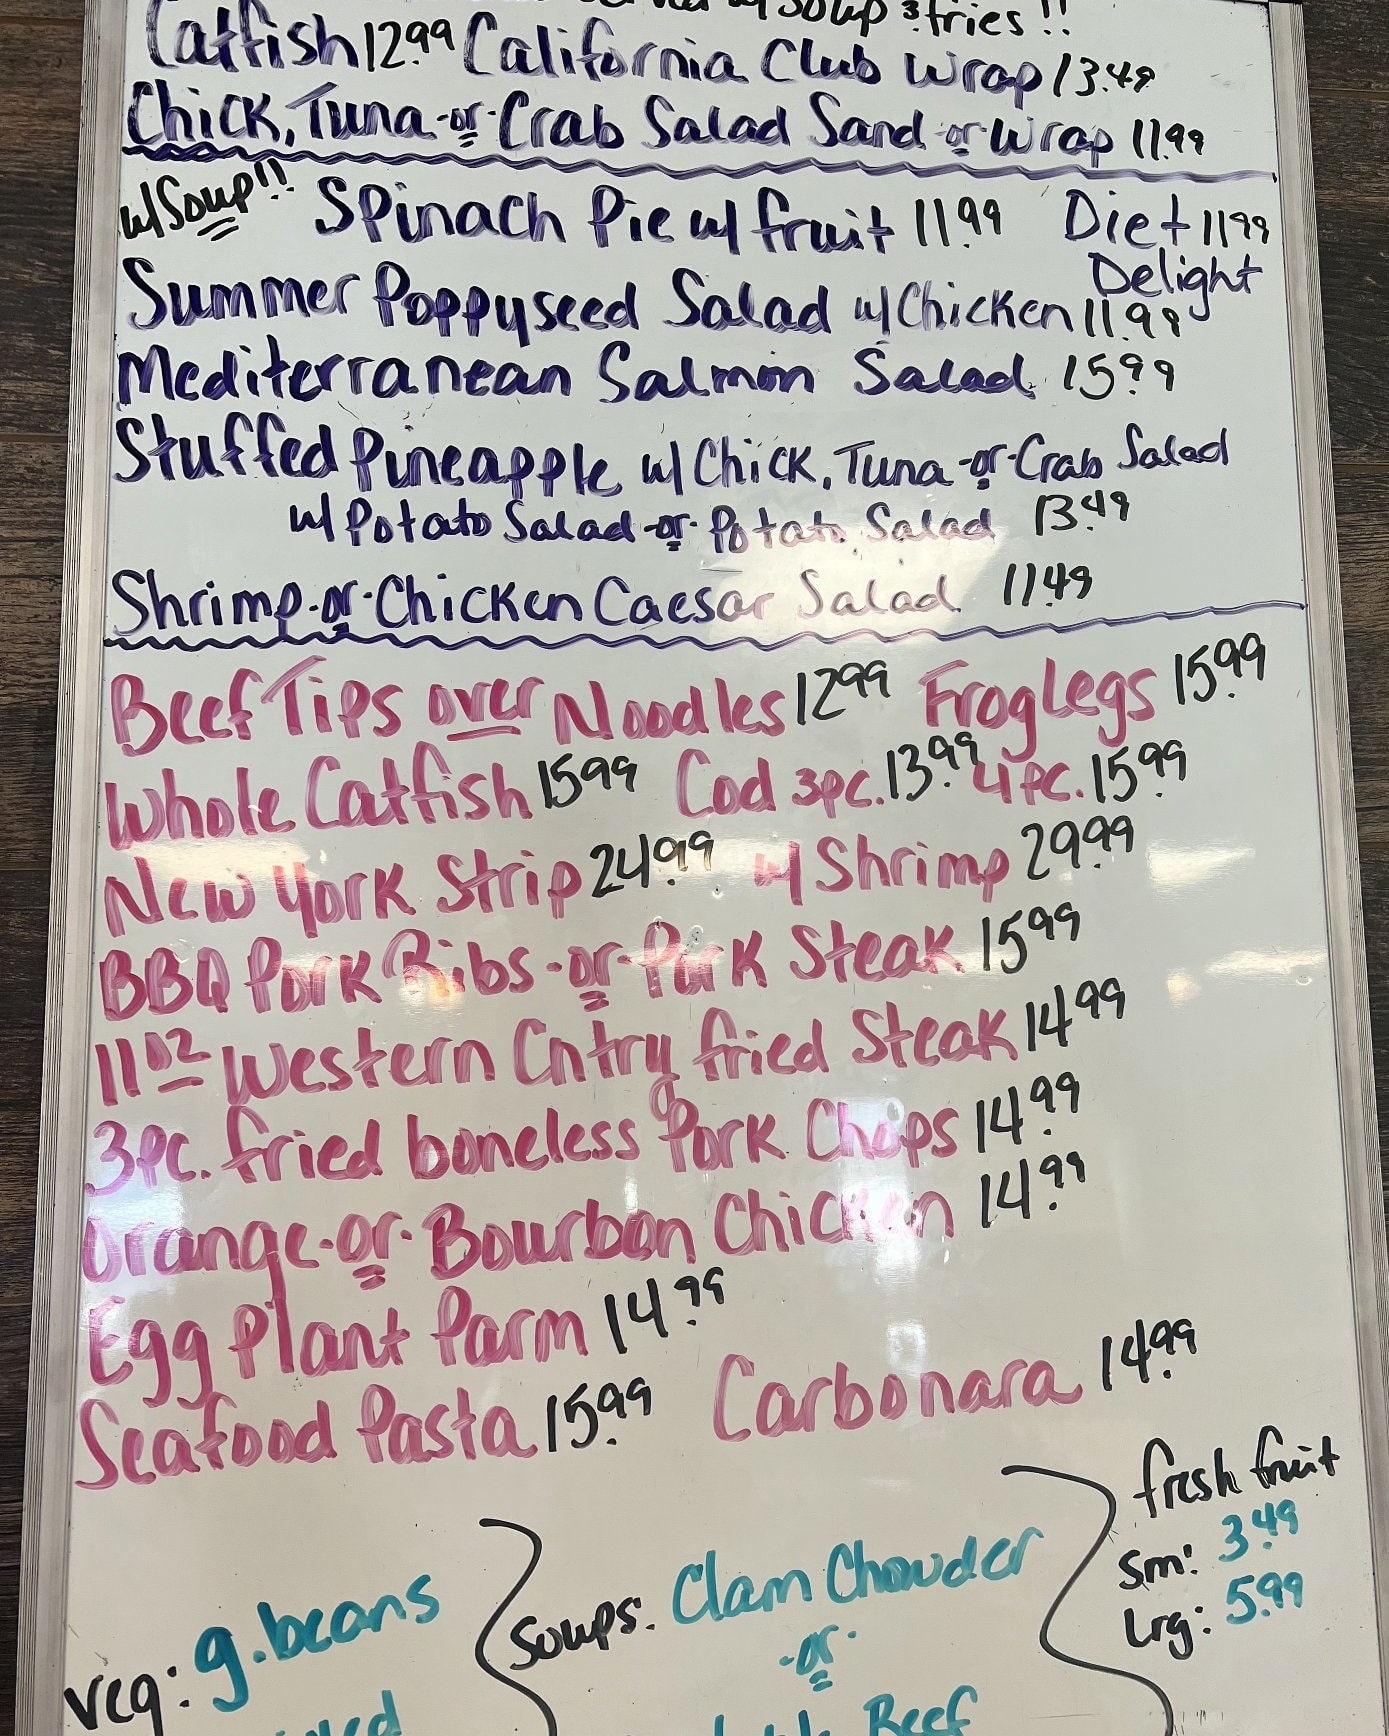 w/ Soup & fries!!
Catfish 12.99 California Club Wrap 13.49
Chick, Tuna -or- Crab Salad Sand -or- Wrap 11.99
w/Soup!! Spinach Pie w/ fruit 11.99 Diet 11.99
Delight
Summer Poppyseed Salad w/ Chicken 11.99
Mediterranean Salmon Salad 15.99
Stuffed Pineapple w/ Chick, Tuna -or- Crab Salad
w/ Potato Salad -or- Potato Salad 13.49
Shrimp -or- Chicken Caesar Salad 11.49
Beef Tips over Noodles 12.99 Frog Legs 15.99
Whole Catfish 15.99 Cod 3pc. 13.99 4pc. 15.99
New York Strip 24.99 w/ Shrimp 29.99
BBQ Pork Ribs -or- Pork Steak 15.99
11oz Western Cntry fried Steak 14.99
3pc. fried boneless Pork Chops 14.99
Orange -or- Bourbon Chicken 14.99
Egg Plant Parm 14.99
Seafood Pasta 15.99 Carbonara 14.99
fresh fruit
Sm: 3.49
Lrg: 5.99
Soups: Clam Chowder
-or-
Beef
veg: g.beans